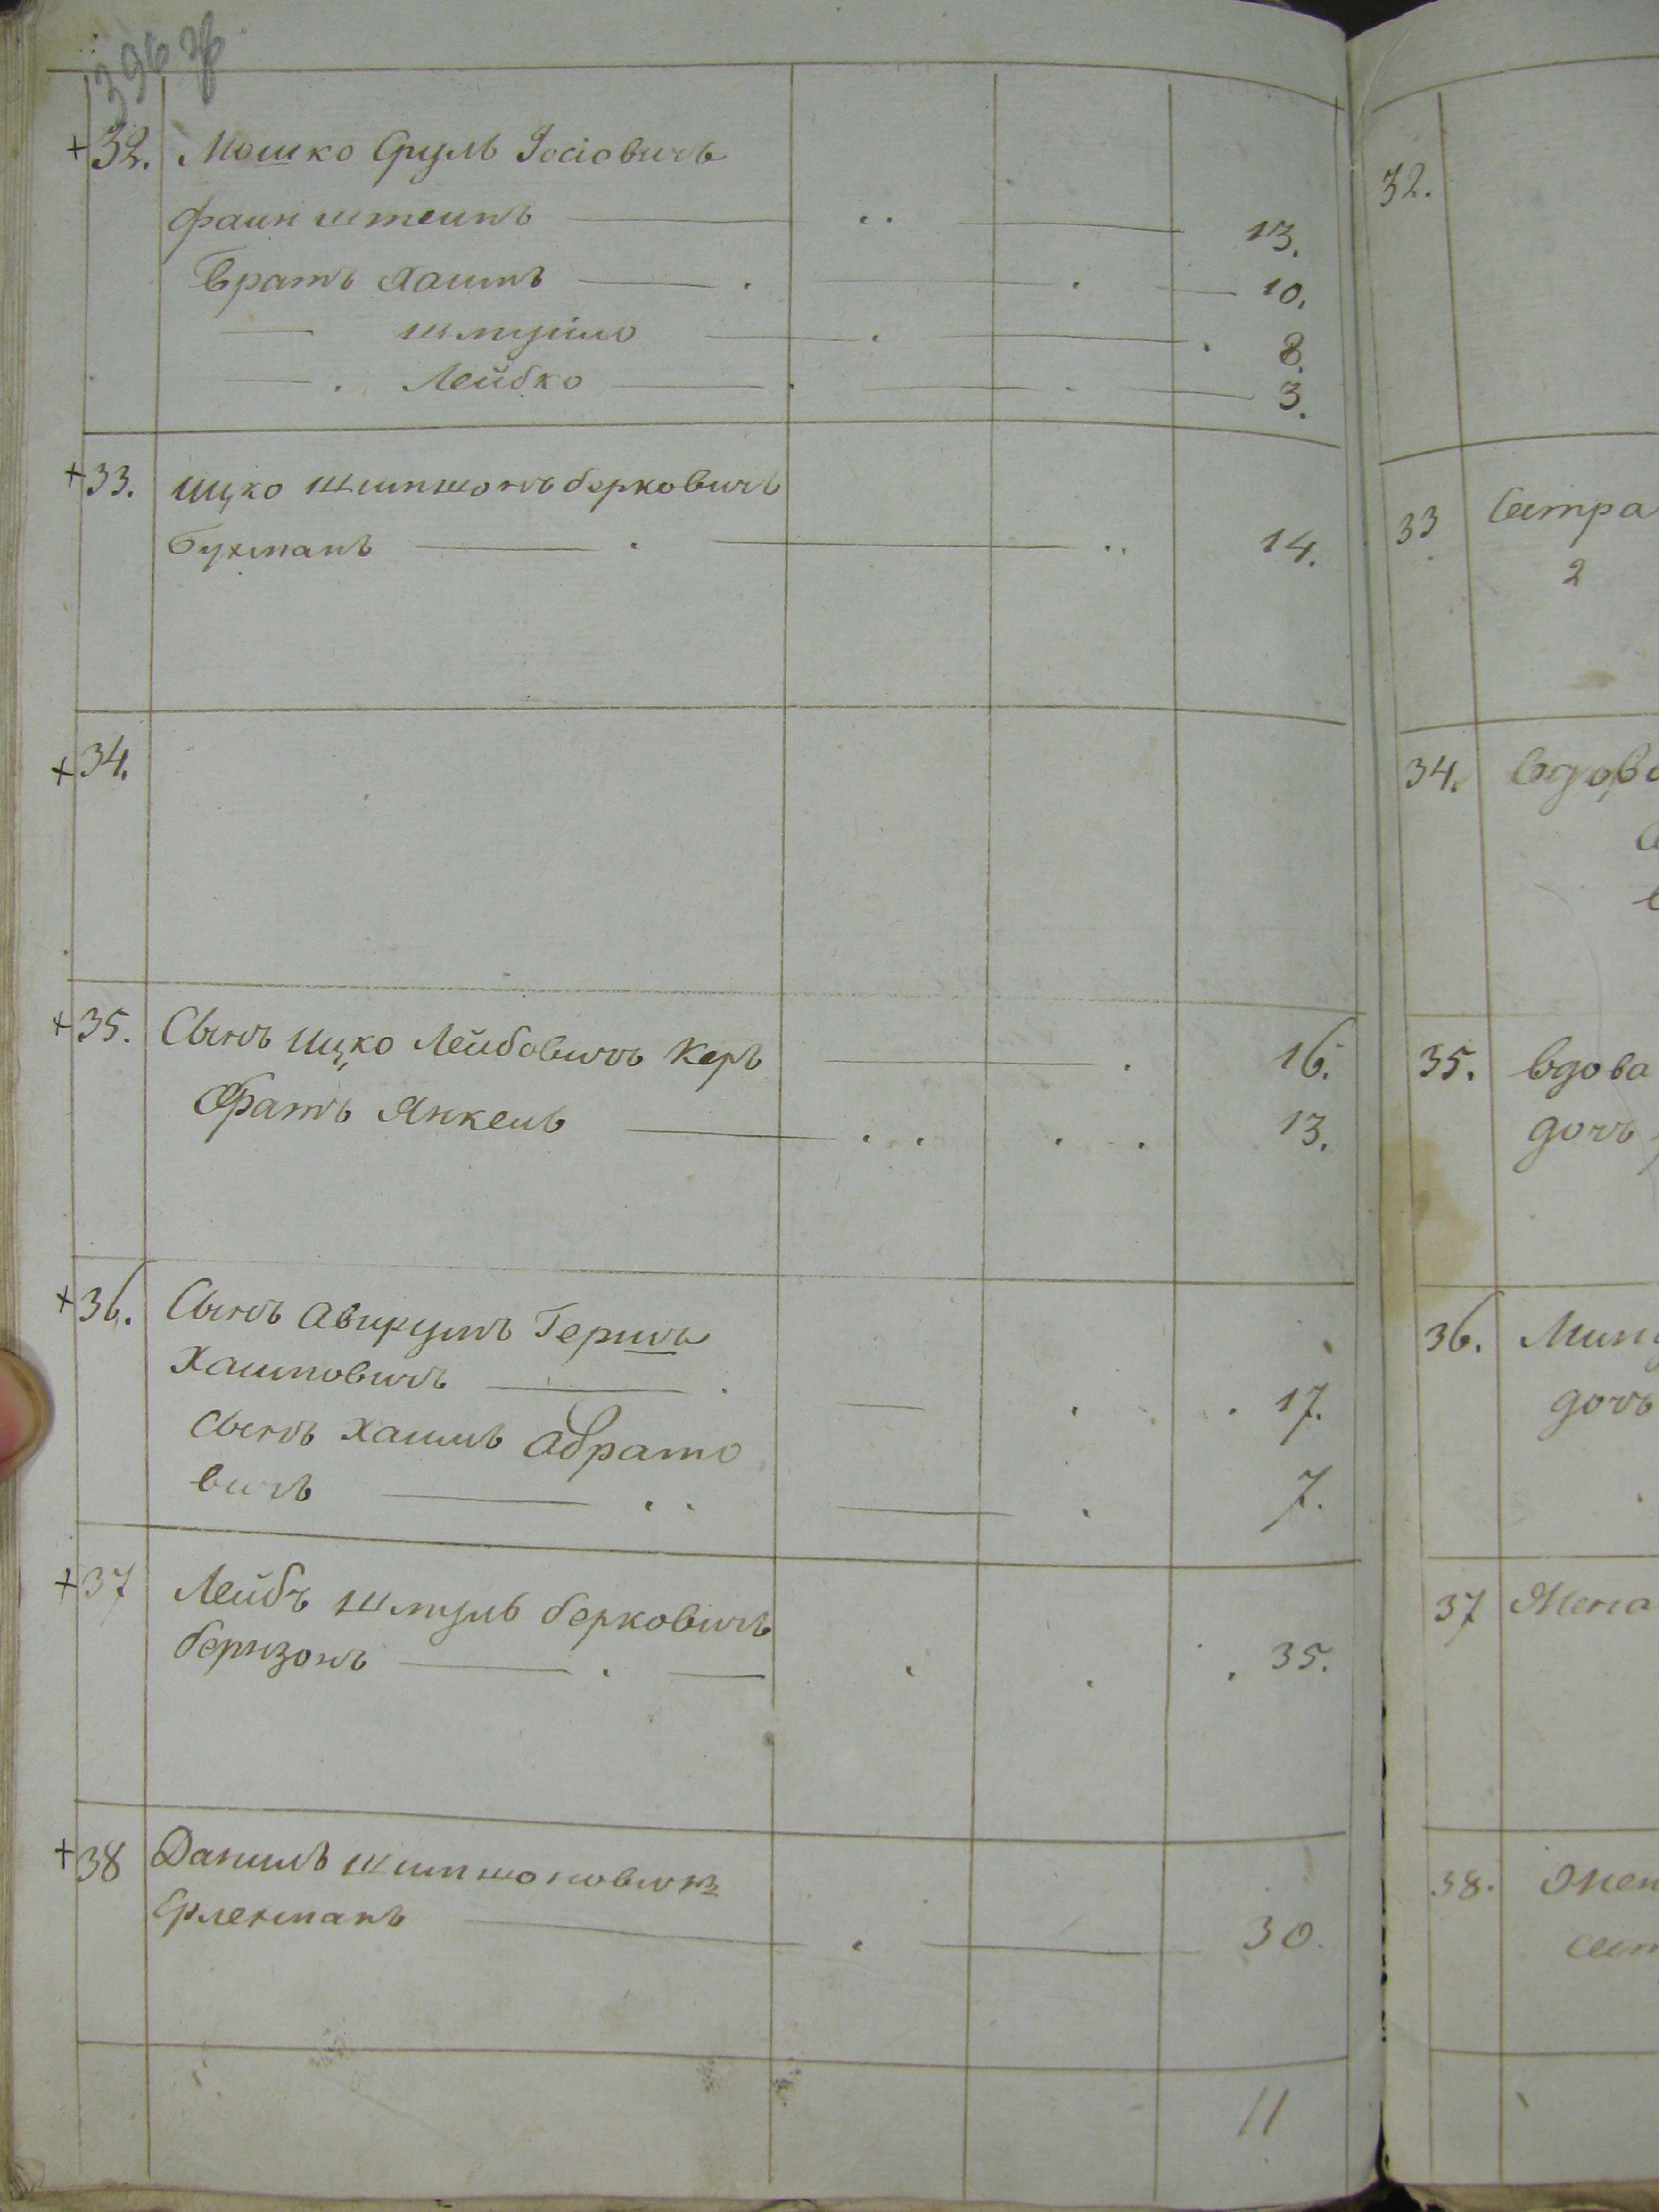 396 об.
+32. Мошко Сруль Іосіовичъ
Фаинштеинъ 13.
Братъ Хаимъ 10.
— Шмуйло 8.
— Лейбко 3.
+33. Ицко Шимшонъ Берковичъ
Бухманъ 14.
+34.
+35. Сынъ Ицко Лейбовичъ Керъ 16.
Братъ Янкель 13.
+36. Сынъ Авицумъ Гершъ
Хаимовичъ 17.
Сынъ Хаимъ Абрамо
вичъ 7.
+37 Лейбъ Шмуль Берковичъ
Беринзонъ 35.
+38 Данилъ Шимшоновичъ
Флехманъ 30.
11
32.
33 Сестра
2
34. вдова
35. вдова
дочь
36.
дочь
37 Жена
38.